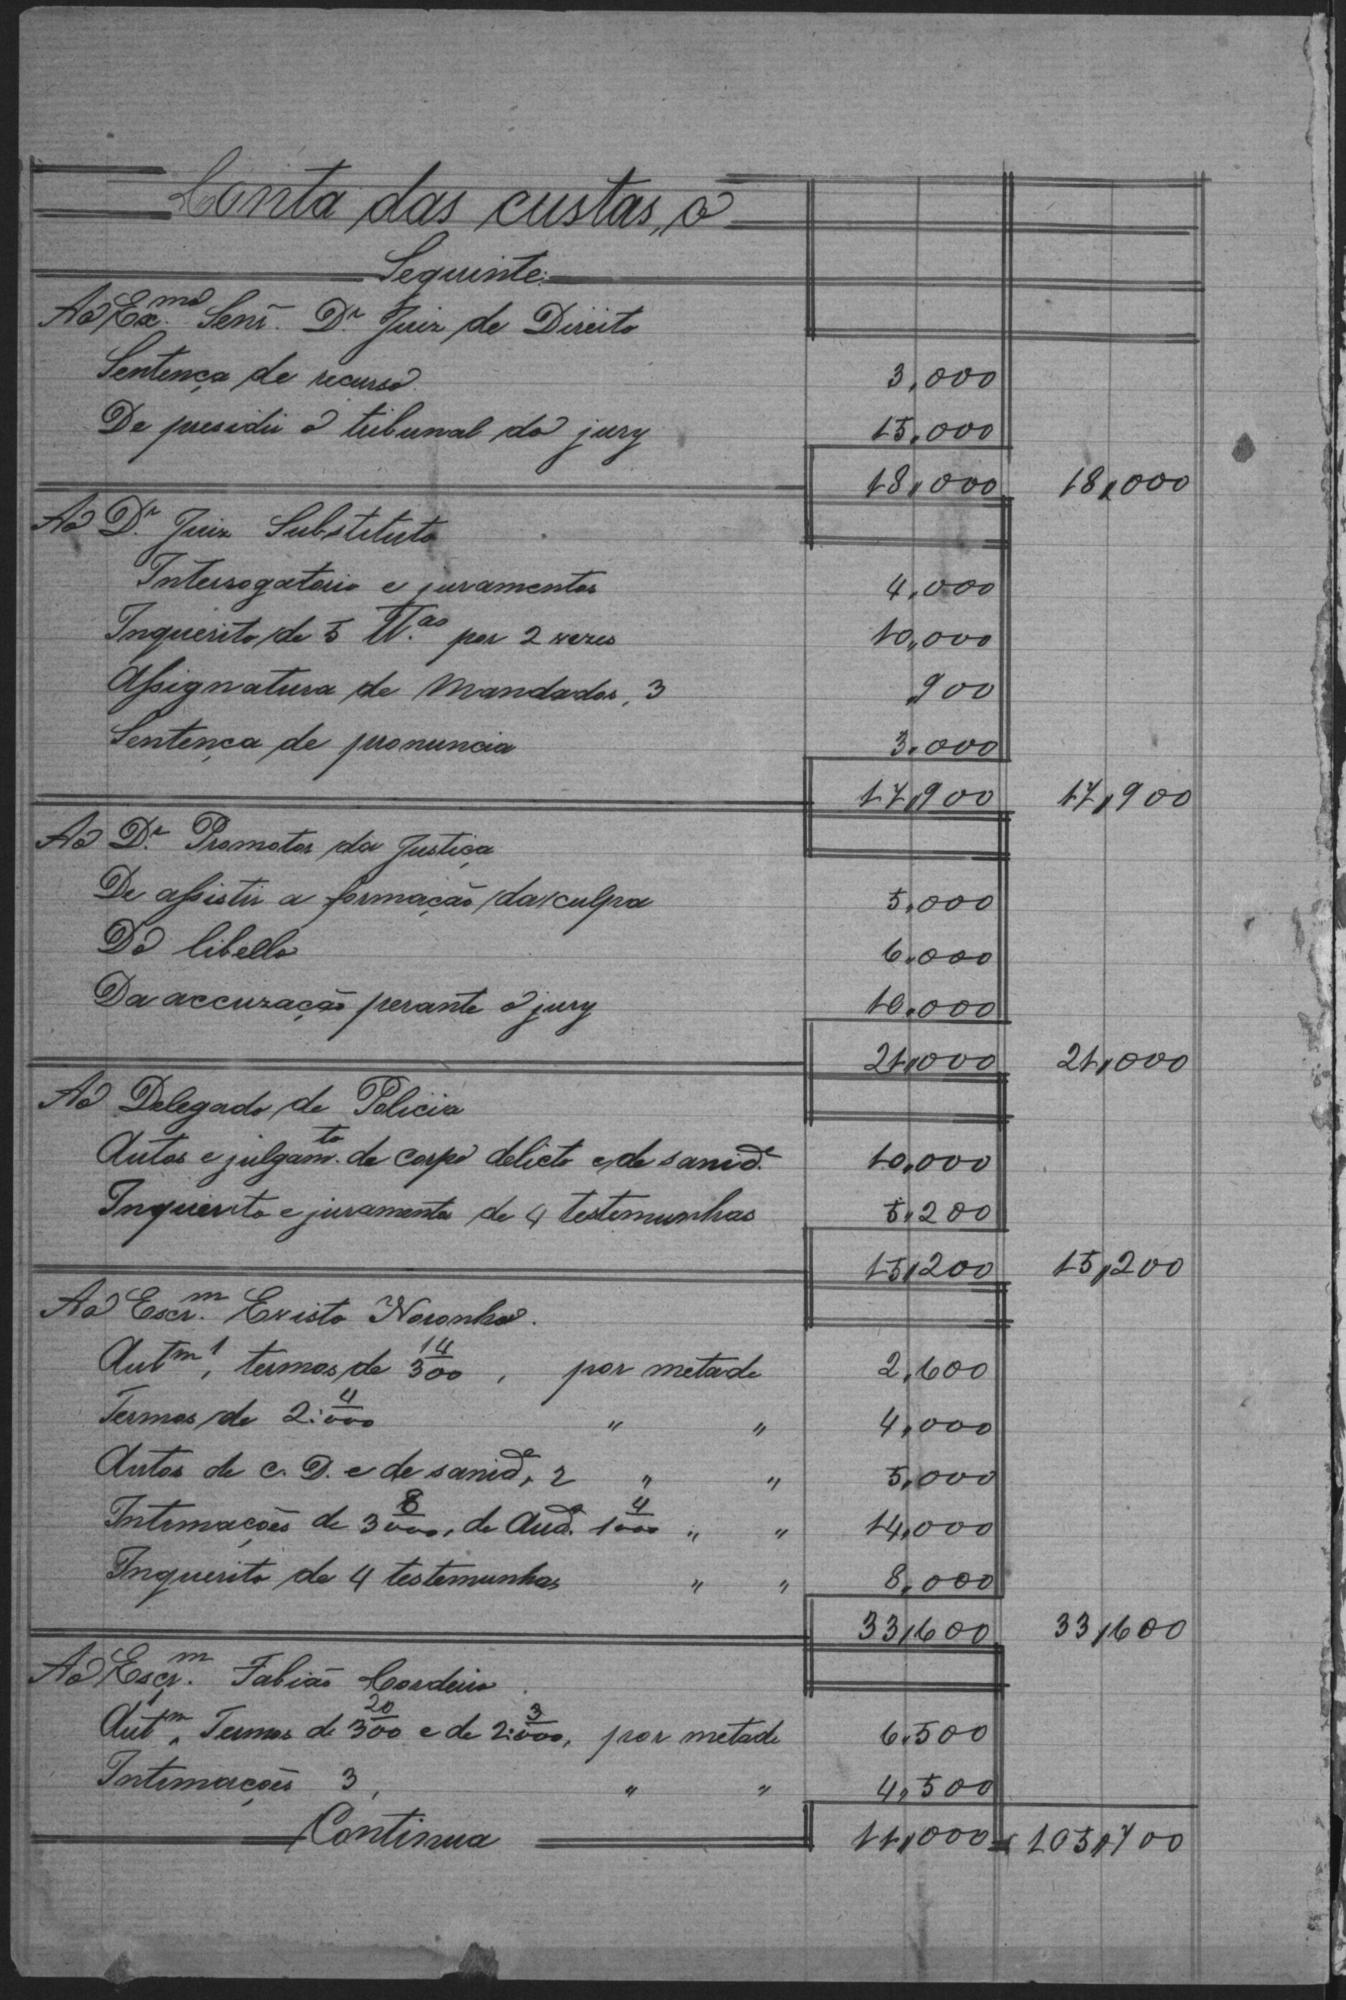 Conta das custas, o
Seguinte:
Ao Ex.mo Senr. Dr Juiz de Direito
Sentença de recurso 3,000
De presidir o tribunal do jury 15,000
18,000 18,000
Ao Dr. Juiz Substituto
Interrogatorio e juramentos 4,000
Inquerito de 5 T.as por 2 vezes 10,000
Assignatura de Mandados, 3 ,900
Sentença de pronuncia 3,000
17,900 17,900
Ao Dr. Promotor da Justiça
De assistir a formação da culpa 5,000
Do libello 6,000
Da accuzação perante o jury 10,000
21,000 21,000
Ao Delegado de Policia
Autos e julgam.to de corpo delicto e de sanid.e 10,000
Inquerito e juramento de 4 testemunhas 5,200
15,200 15,200
Ao Escr.m Evisto Noronha.
Autm 1, termos de 14/300, por metade 2,600
Termos de 2:4/000 " " 4,000
Autos de c. D. e de sanid.e, 2 " " 5,000
Intimações de 3 8/000, de Aud.a 1 4/000 " " 14,000
Inquerito de 4 testemunhas " " 8,000
33,600 33,600
Ao Escr.m Fabião Cordeiro.
Autm 1, Termos de 20/300 e de 2:3/000, por metade 6,500
Intimações 3, " " 4,500
Continua 11,000 105,700